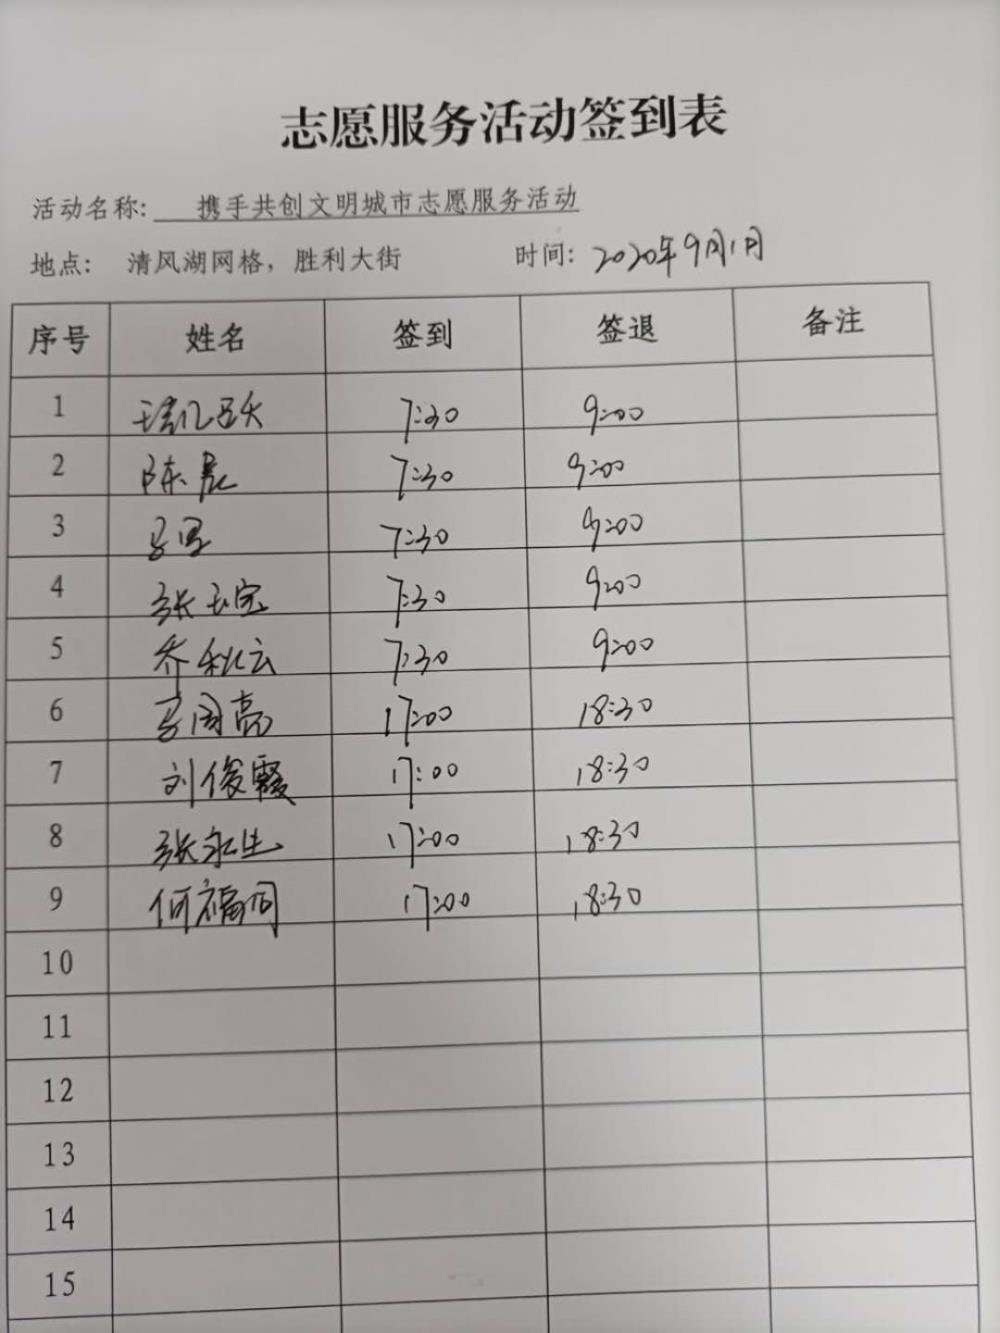 志愿服务活动签到表
活动名称: 携手共创文明城市志愿服务活动
地点: 清风湖网格，胜利大街 时间: 2020年9月1日
序号 姓名 签到 签退 备注
1 7:30 9:00
2 陈晨 7:30 9:00
3 7:30 9:00
4 张玉宝 7:30 9:00
5 乔秋云 7:30 9:00
6 17:00 18:30
7 刘俊霞 17:00 18:30
8 张永生 17:00 18:30
9 何福同 17:00 18:30
10
11
12
13
14
15